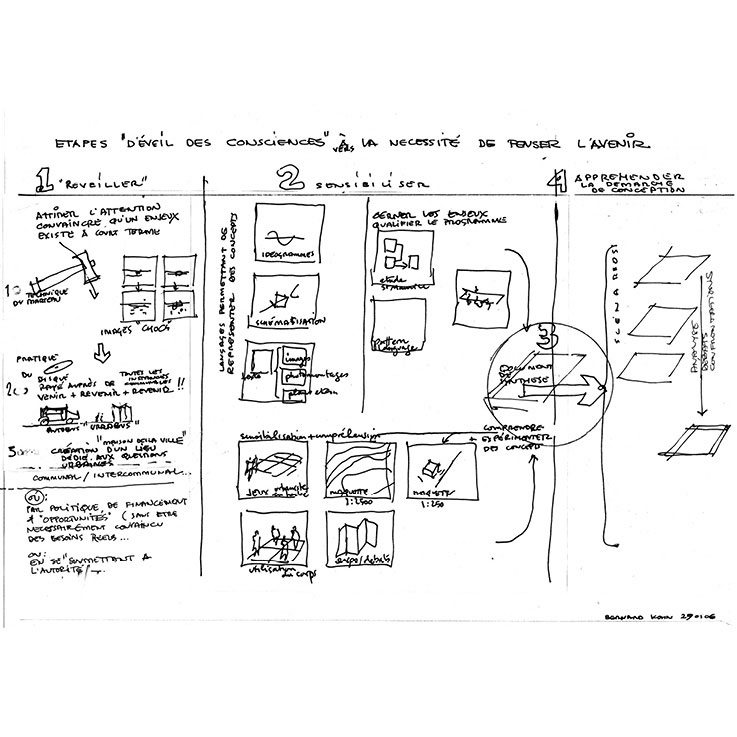 ETAPES "D'ÉVEIL DES CONSCIENCES" À LA NECESSITÉ DE PENSER L'AVENIR
VERS
1 "REVEILLER"
ATTIRER L'ATTENTION
CONVAINCRE QU'UN ENJEUX
EXISTE À COURT TERME
TECHNIQUE
DU MARTEAU
IMAGES "CHOCS"
PRATIQUE
DU DISQUE
RAYÉ AUPRÈS DE TOUTES LES
VENIR + REVENIR + REVENIR !!
AUTOBUS "URBABUS"
"MAISON DE LA VILLE"
CRÉATION D'UN LIEU
DÉDIÉ AUX QUESTIONS
URBAINES
COMMUNAL / INTERCOMMUNAL...
OÙ:
PAR POLITIQUE DE FINANCEMENT
"OPPORTUNITÉS" (SANS ETRE
NECESSAIREMENT CONVAINCU
DES BESOINS REELS...
OU:
EN SE "SOUMETTANT A
L'AUTORITÉ/...
2 SENSIBILISER
LANGAGES PERMETTANT DE
REPRÉSENTER DES CONCEPTS
IDÉOGRAMMES
SCHÉMATISATION
texte
images
photomontages
CERNER LES ENJEUX
QUALIFIER LE PROGRAMME
pattern
language
sensibilisation + compréhension
maquette
1:2500
maquette
1:250
utilisation
du corps
expo/débats
3
DOCUMENT
DE
SYNTHESE
COMPRENDRE
+ EXPÉRIMENTER
DES CONCEPTS
4 APPREHENDER
LA DEMARCHE
DE CONCEPTION
SCÉNARIOS
ANALYSE
BERNARD KOHN 290106